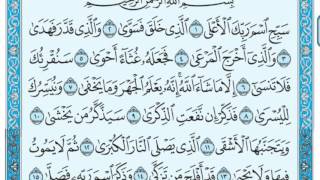 بِسْمِ اللَّهِ الرَّحْمَٰنِ الرَّحِيمِ
سَبِّحِ اسْمَ رَبِّكَ الْأَعْلَى ۝١ الَّذِي خَلَقَ فَسَوَّىٰ ۝٢ وَالَّذِي قَدَّرَ فَهَدَىٰ
۝٣ وَالَّذِي أَخْرَجَ الْمَرْعَىٰ ۝٤ فَجَعَلَهُ غُثَاءً أَحْوَىٰ ۝٥ سَنُقْرِئُكَ
فَلَا تَنسَىٰ ۝٦ إِلَّا مَا شَاءَ اللَّهُ إِنَّهُ يَعْلَمُ الْجَهْرَ وَمَا يَخْفَىٰ ۝٧ وَنُيَسِّرُكَ
لِلْيُسْرَىٰ ۝٨ فَذَكِّرْ إِن نَّفَعَتِ الذِّكْرَىٰ ۝٩ سَيَذَّكَّرُ مَن يَخْشَىٰ ۝١٠
وَيَتَجَنَّبُهَا الْأَشْقَى ۝١١ الَّذِي يَصْلَى النَّارَ الْكُبْرَىٰ ۝١٢ ثُمَّ لَا يَمُوتُ
فِيهَا وَلَا يَحْيَىٰ ۝١٣ قَدْ أَفْلَحَ مَن تَزَكَّىٰ ۝١٤ وَذَكَرَ اسْمَ رَبِّهِ فَصَلَّىٰ ۝١٥